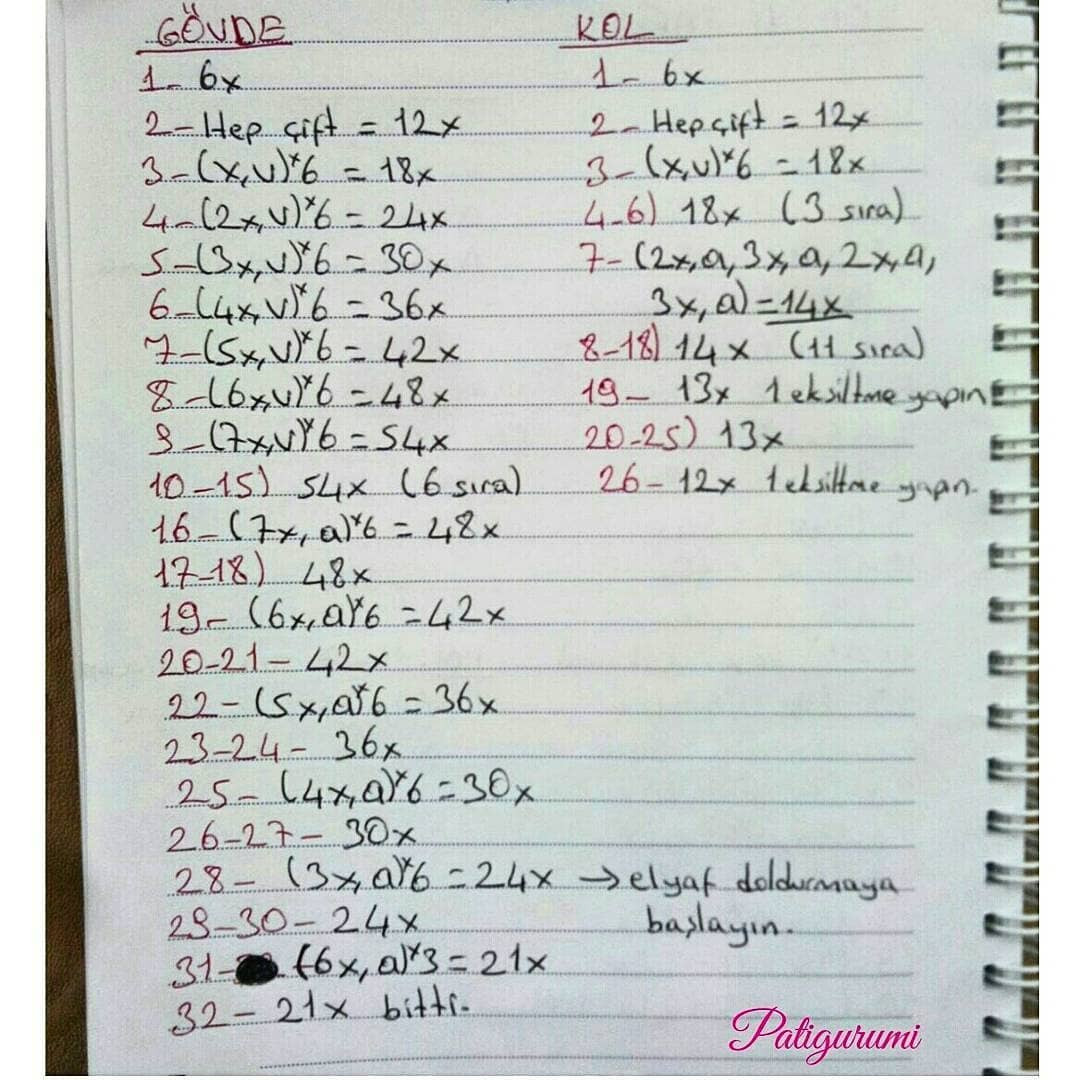 GÖVDE
1- 6x
2- Hep çift = 12x
3- (x,v)*6 = 18x
4- (2x,v)*6 = 24x
5- (3x,v)*6 = 30x
6- (4x,v)*6 = 36x
7- (5x,v)*6 = 42x
8- (6x,v)*6 = 48x
9- (7x,v)*6 = 54x
10-15) 54x (6 sıra)
16- (7x, a)*6 = 48x
17-18) 48x
19- (6x, a)*6 = 42x
20-21- 42x
22- (5x, a)*6 = 36x
23-24- 36x
25- (4x, a)*6 = 30x
26-27- 30x
28- (3x, a)*6 = 24x → elyaf doldurmaya
başlayın.
29-30- 24x
31- (6x, a)*3 = 21x
32- 21x bitti.
KOL
1- 6x
2- Hep çift = 12x
3- (x,v)*6 = 18x
4-6) 18x (3 sıra)
7- (2x,a,3x,a,2x,a,
3x,a) = 14x
8-18) 14x (11 sıra)
19- 13x 1 eksiltme yapın
20-25) 13x
26- 12x 1 eksiltme yapın.
Patigurumi